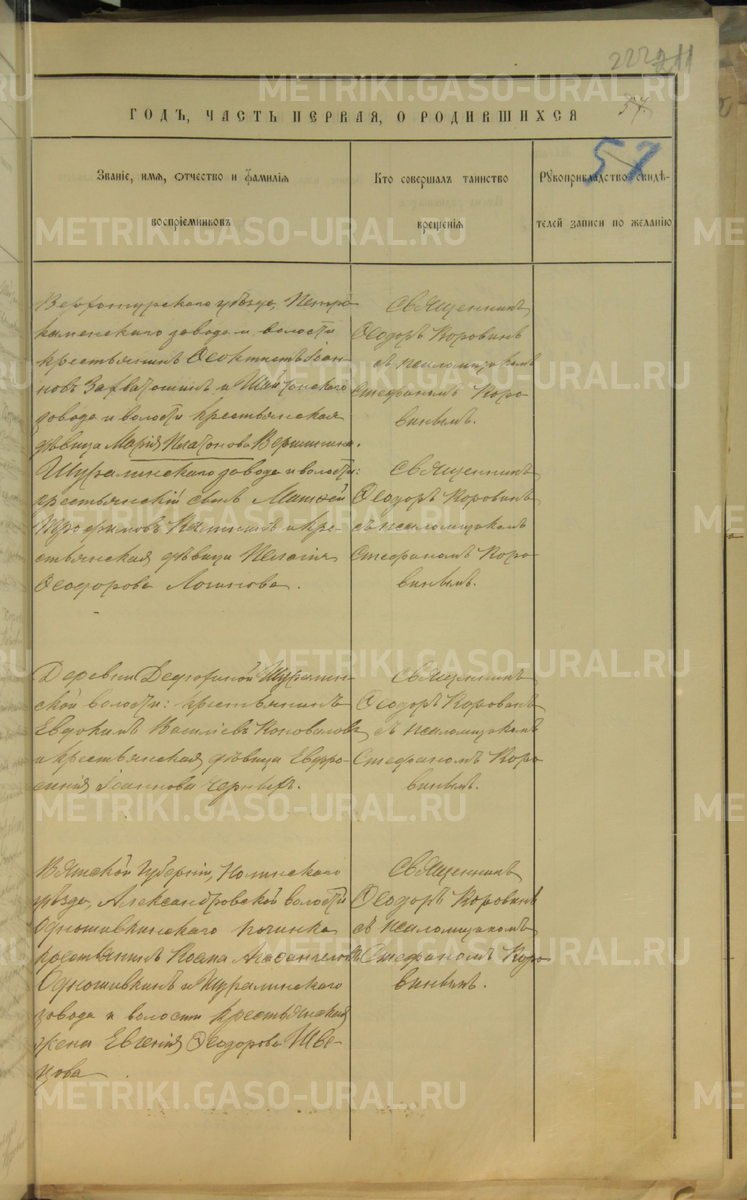 222 211
57
57
ГОДЪ, ЧАСТЬ ПЕРВАЯ, О РОДИВШИХСЯ
Званіе, имя, отчество и фамилія
воспріемниковъ
Кто совершалъ таинство
крещенія
Рукоприкладство свидѣ-
телей записи по желанію
Верхотурскаго уѣзда, Петро
каменскаго завода и волости
крестьянинъ Ѳеоктистъ Іоан-
новъ и Шайтанскаго
завода и волости крестьянская
дѣвица Марія Платонова
Священникъ
Ѳеодоръ Коровинъ
съ псаломщикомъ
Стефаномъ Коро-
винымъ.
Шуралинскаго завода и волости:
крестьянскій сынъ Матѳей
Трофимовъ и кре-
стьянская дѣвица Пелагія
Ѳеодорова Логинова.
Священникъ
Ѳеодоръ Коровинъ
съ псаломщикомъ
Стефаномъ Коро-
винымъ.
Деревни Шуралин-
ской волости: крестьянинъ
Евдокимъ Васильевъ Коноваловъ
и крестьянская дѣвица Евфро-
синія Іоаннова Черныхъ.
Священникъ
Ѳеодоръ Коровинъ
съ псаломщикомъ
Стефаномъ Коро
винымъ.
Вятской губерніи, Нолинскаго
уѣзда, Александровской волости
починка
крестьянинъ
и Шуралинскаго
завода и волости крестьянская
жена Евгенія Ѳеодорова Шве-
цова.
Священникъ
Ѳеодоръ Коровинъ
съ псаломщикомъ
Стефаномъ Коро
винымъ.
METRIKI.GASO-URAL.RU